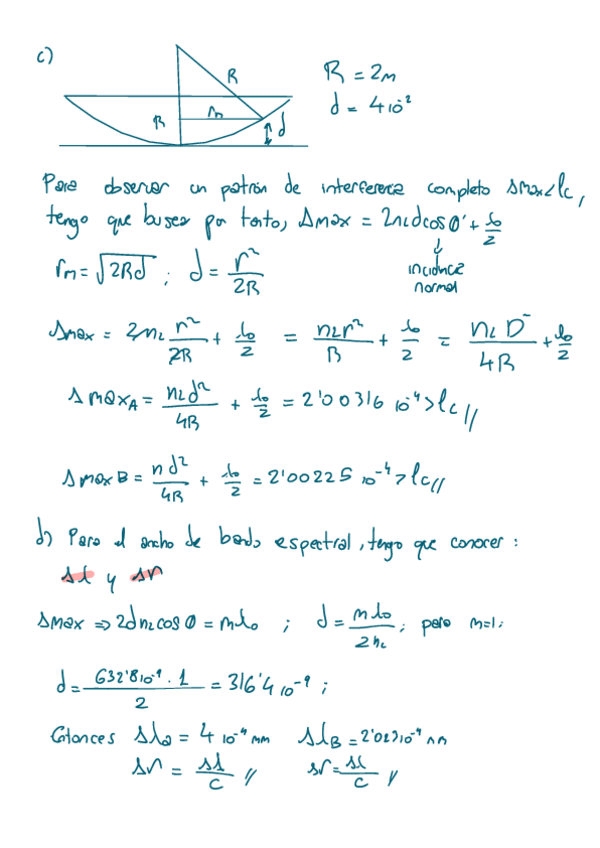 c)
R
R
rₘ
d
R = 2m
d = 4 10⁻²
Para observar un patrón de interferencia completo Δmax < lc,
tengo que buscar por tanto, Δmax = 2nLd cos θ' + λ₀/2
incidencia normal
rₘ = √2Rd ; d = r²/2R
Δmax = 2nL r²/2R + λ₀/2 = nLr²/R + λ₀/2 = nL D²/4R + λ₀/2
ΔmaxA = nLd²/4R + λ₀/2 = 2'00316 10⁻⁴ > lc //
Δmax B = n d²/4R + λ₀/2 = 2'00225 10⁻⁴ > lc //
d) Para el ancho de banda espectral, tengo que conocer :
Δλ y Δν
Δmax => 2dnL cos θ = mλ₀ ; d = mλ₀/2nL ; para m=1 :
d = 632'8 10⁻⁹ · 1/2 = 316'4 10⁻⁹ ;
Entonces Δλa = 4 10⁻⁴ mm ΔλB = 2'023 10⁻⁴ mm
Δν = Δλ/c // Δν = Δλ/c //